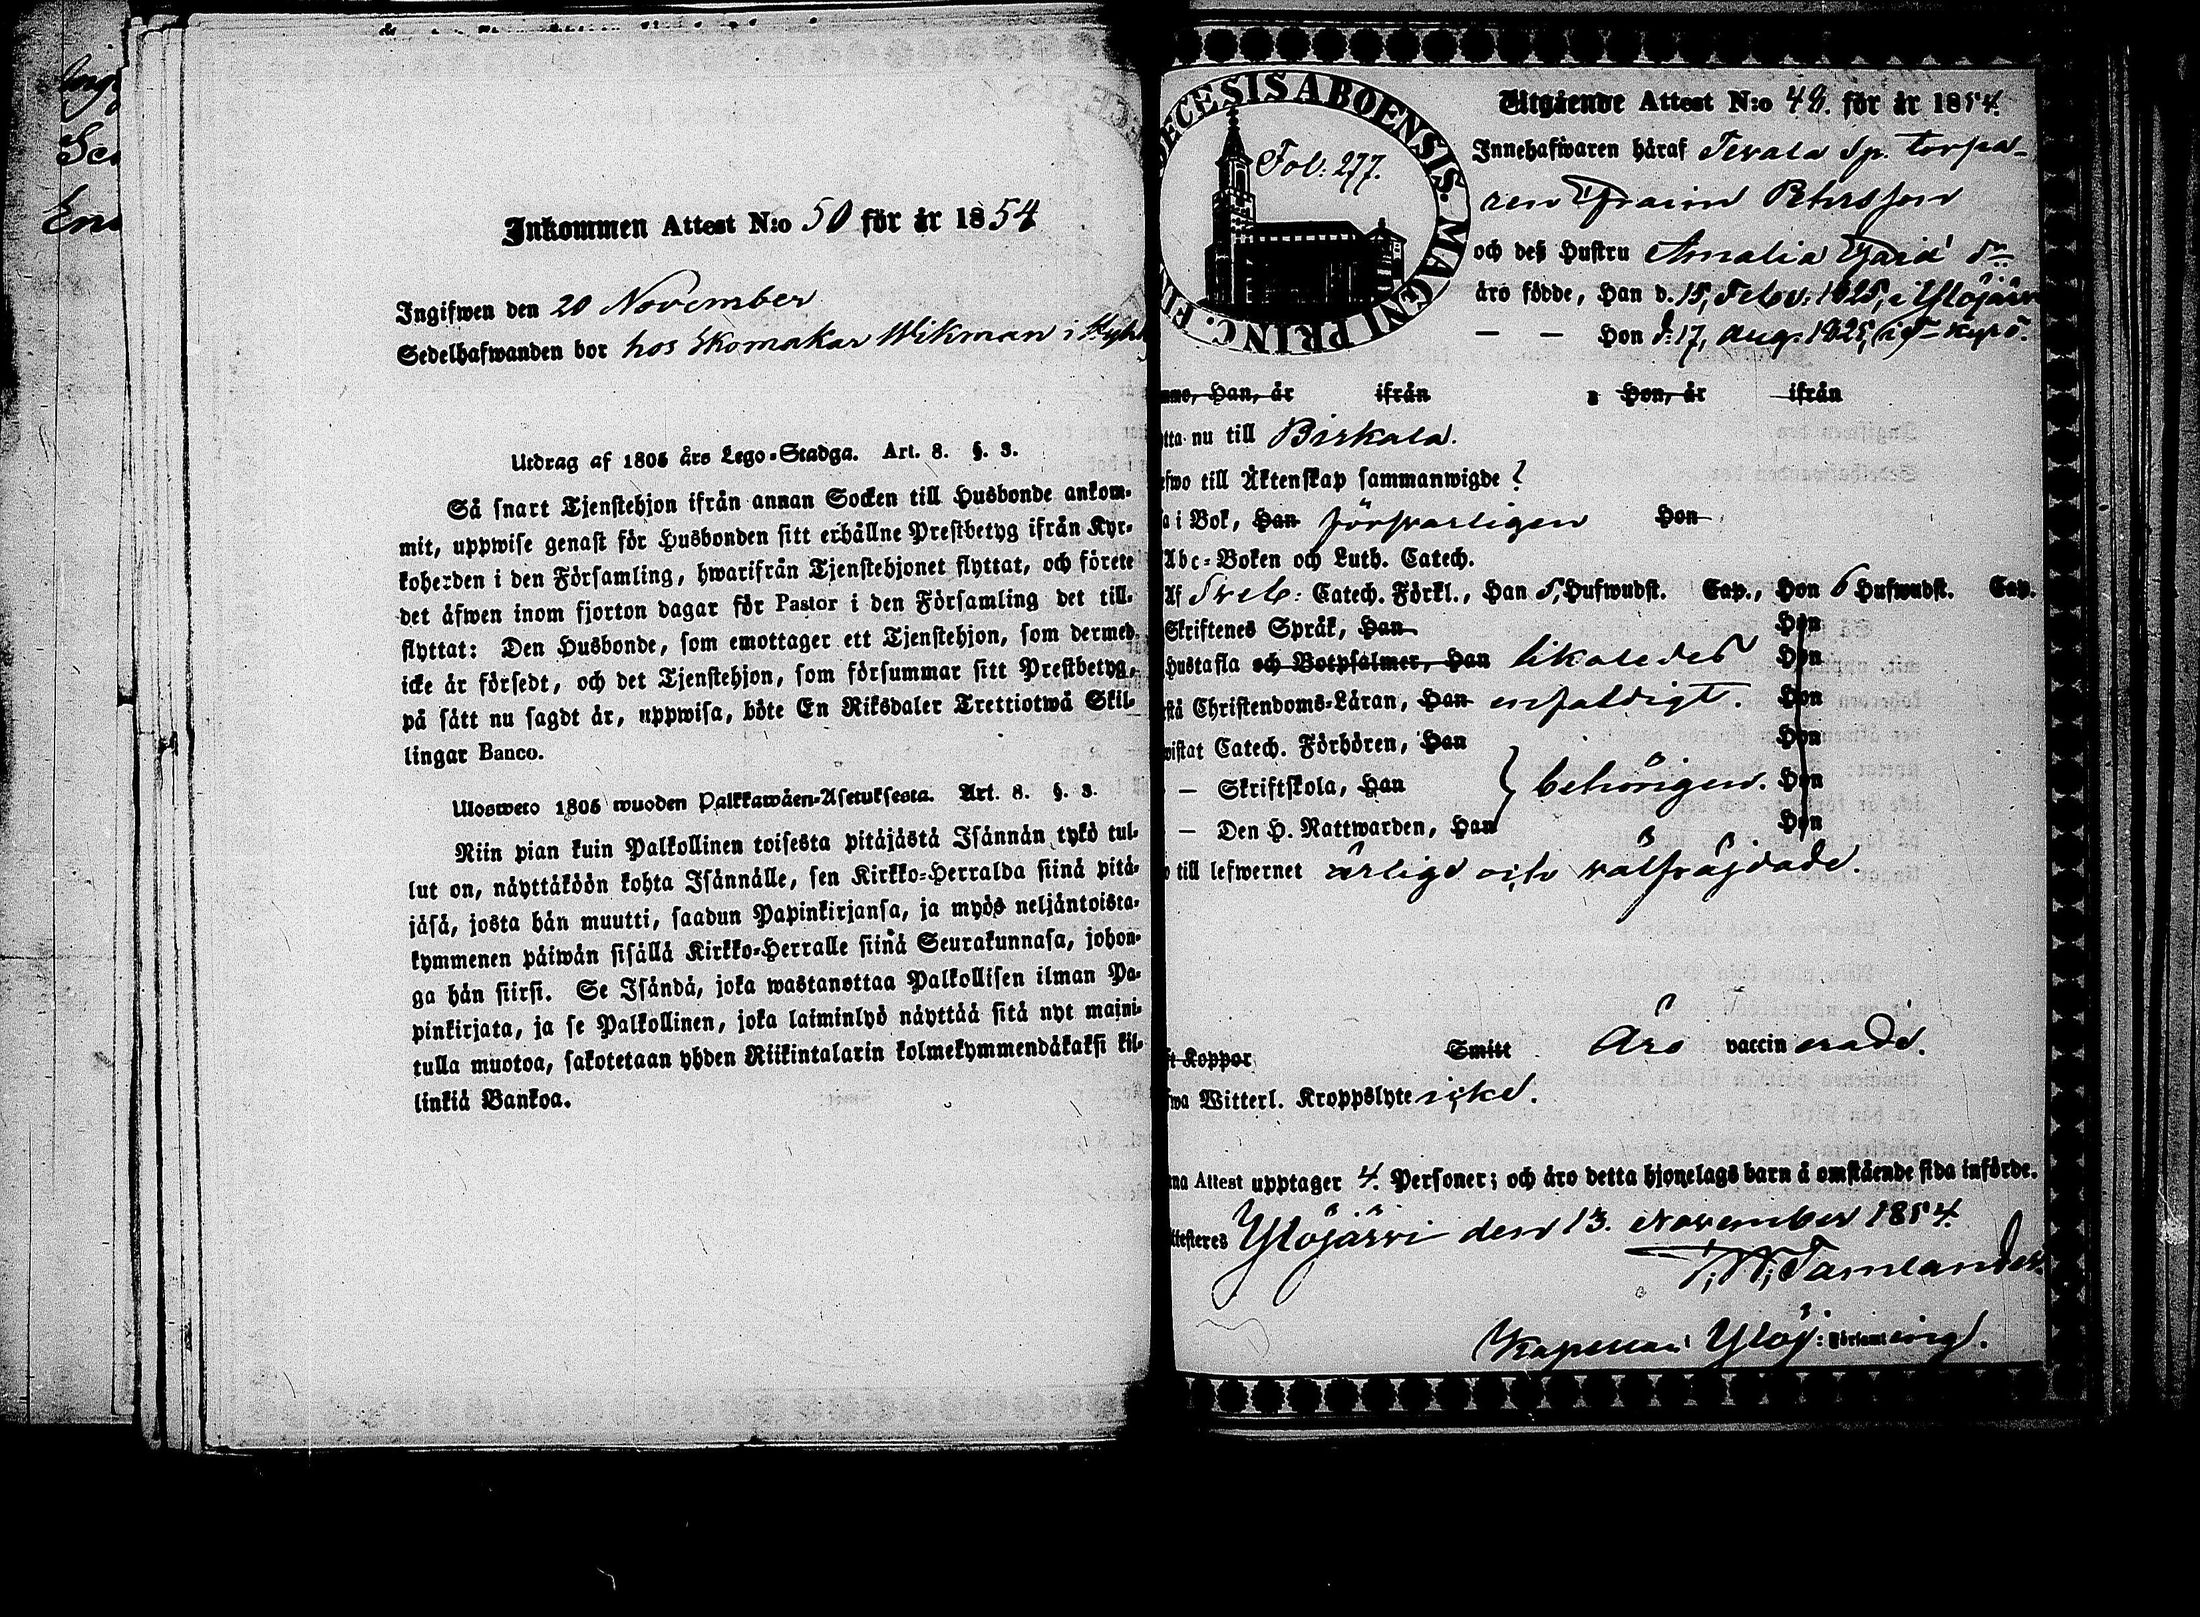 Inkommen Attest N:o 50 för år 1854
Ingifwen den 20 November
Sedelhafwanden bor hos Skomakar Wikman i
Utdrag af 1805 års Lego-Stadga. Art. 8. §. 3.
Så snart Tjenstehjon ifrån annan Socken till Husbonde ankom-
mit, uppwise genast för Husbonden sitt erhållne Prestbetyg ifrån Kyr-
koherden i den Församling, hwarifrån Tjenstehjonet flyttat, och förete
det äfwen inom fjorton dagar för Pastor i den Församling det till-
flyttat: Den Husbonde, som emottager ett Tjenstehjon, som dermed
icke är försedt, och det Tjenstehjon, som försummar sitt Prestbetyg,
på sätt nu sagdt är, uppwisa, böte En Riksdaler Trettiotwå Skil-
lingar Banco.
Ulosweto 1805 wuoden Palkkawäen-Asetuksesta. Art. 8. §. 3.
Niin pian kuin Palkollinen toisesta pitäjästä Isännän tykö tul-
lut on, näyttäköön kohta Isännälle, sen Kirkko-Herralda siinä pitä-
jäsä, josta hän muutti, saadun Papinkirjansa, ja myös neljäntoista-
kymmenen päiwän sisällä Kirkko-Herralle siinä Seurakunnasa, johon-
ga hän siirsi. Se Isändä, joka wastanottaa Palkollisen ilman Pa-
pinkirjata, ja se Palkollinen, joka laiminlyö näyttää sitä nyt maini-
tulla muotoa, sakotetaan yhden Riikintalarin kolmekymmendäkaksi kil-
linkiä Bankoa.
DECESIS ABOENSIS. MAGNI PRINC. FIN
Fol: 277.
Utgående Attest N:o 48. för år 1854.
Innehafwaren häraf Terala Sp. torpa-
ren Efraim Pehrsson
och deß Hustru Amalia
äro födde, Han d. 15, Febr. 1825, i Ylöjärv
— — Hon d. 17, aug. 1825, i T-kyrö.
Han, är ifrån Hon, är ifrån
tta nu till Birkala.
fwo till Äktenskap sammanwigde ?
a i Bok, Han försvarligen Hon
Abc-Boken och Luth. Catech.
Af Sveb: Catech. Förkl., Han 5, Hufwudst. Cap., Hon 6 Hufwudst. Cap.
Skriftenes Språk, Han Hon
Hustafla och Botpsalmer, Han likaledes Hon
stå Christendoms-Läran, Han enfaldigt. Hon
wistat Catech. Förhören, Han Hon
— Skriftskola, Han behörigen. Hon
— Den H. Nattwarden, Han Hon
till lefwernet ärlige och välfräjdade.
ft Koppor Smitt Äro vaccinerade.
fwa Witterl. Kroppslyte icke.
na Attest upptager 4. Personer; och äro detta hjonelags barn å omstående sida införde.
ttesteres Ylöjärvi den 13. November 1854.
Tamlander
Kapellan i Ylöj: Församling.